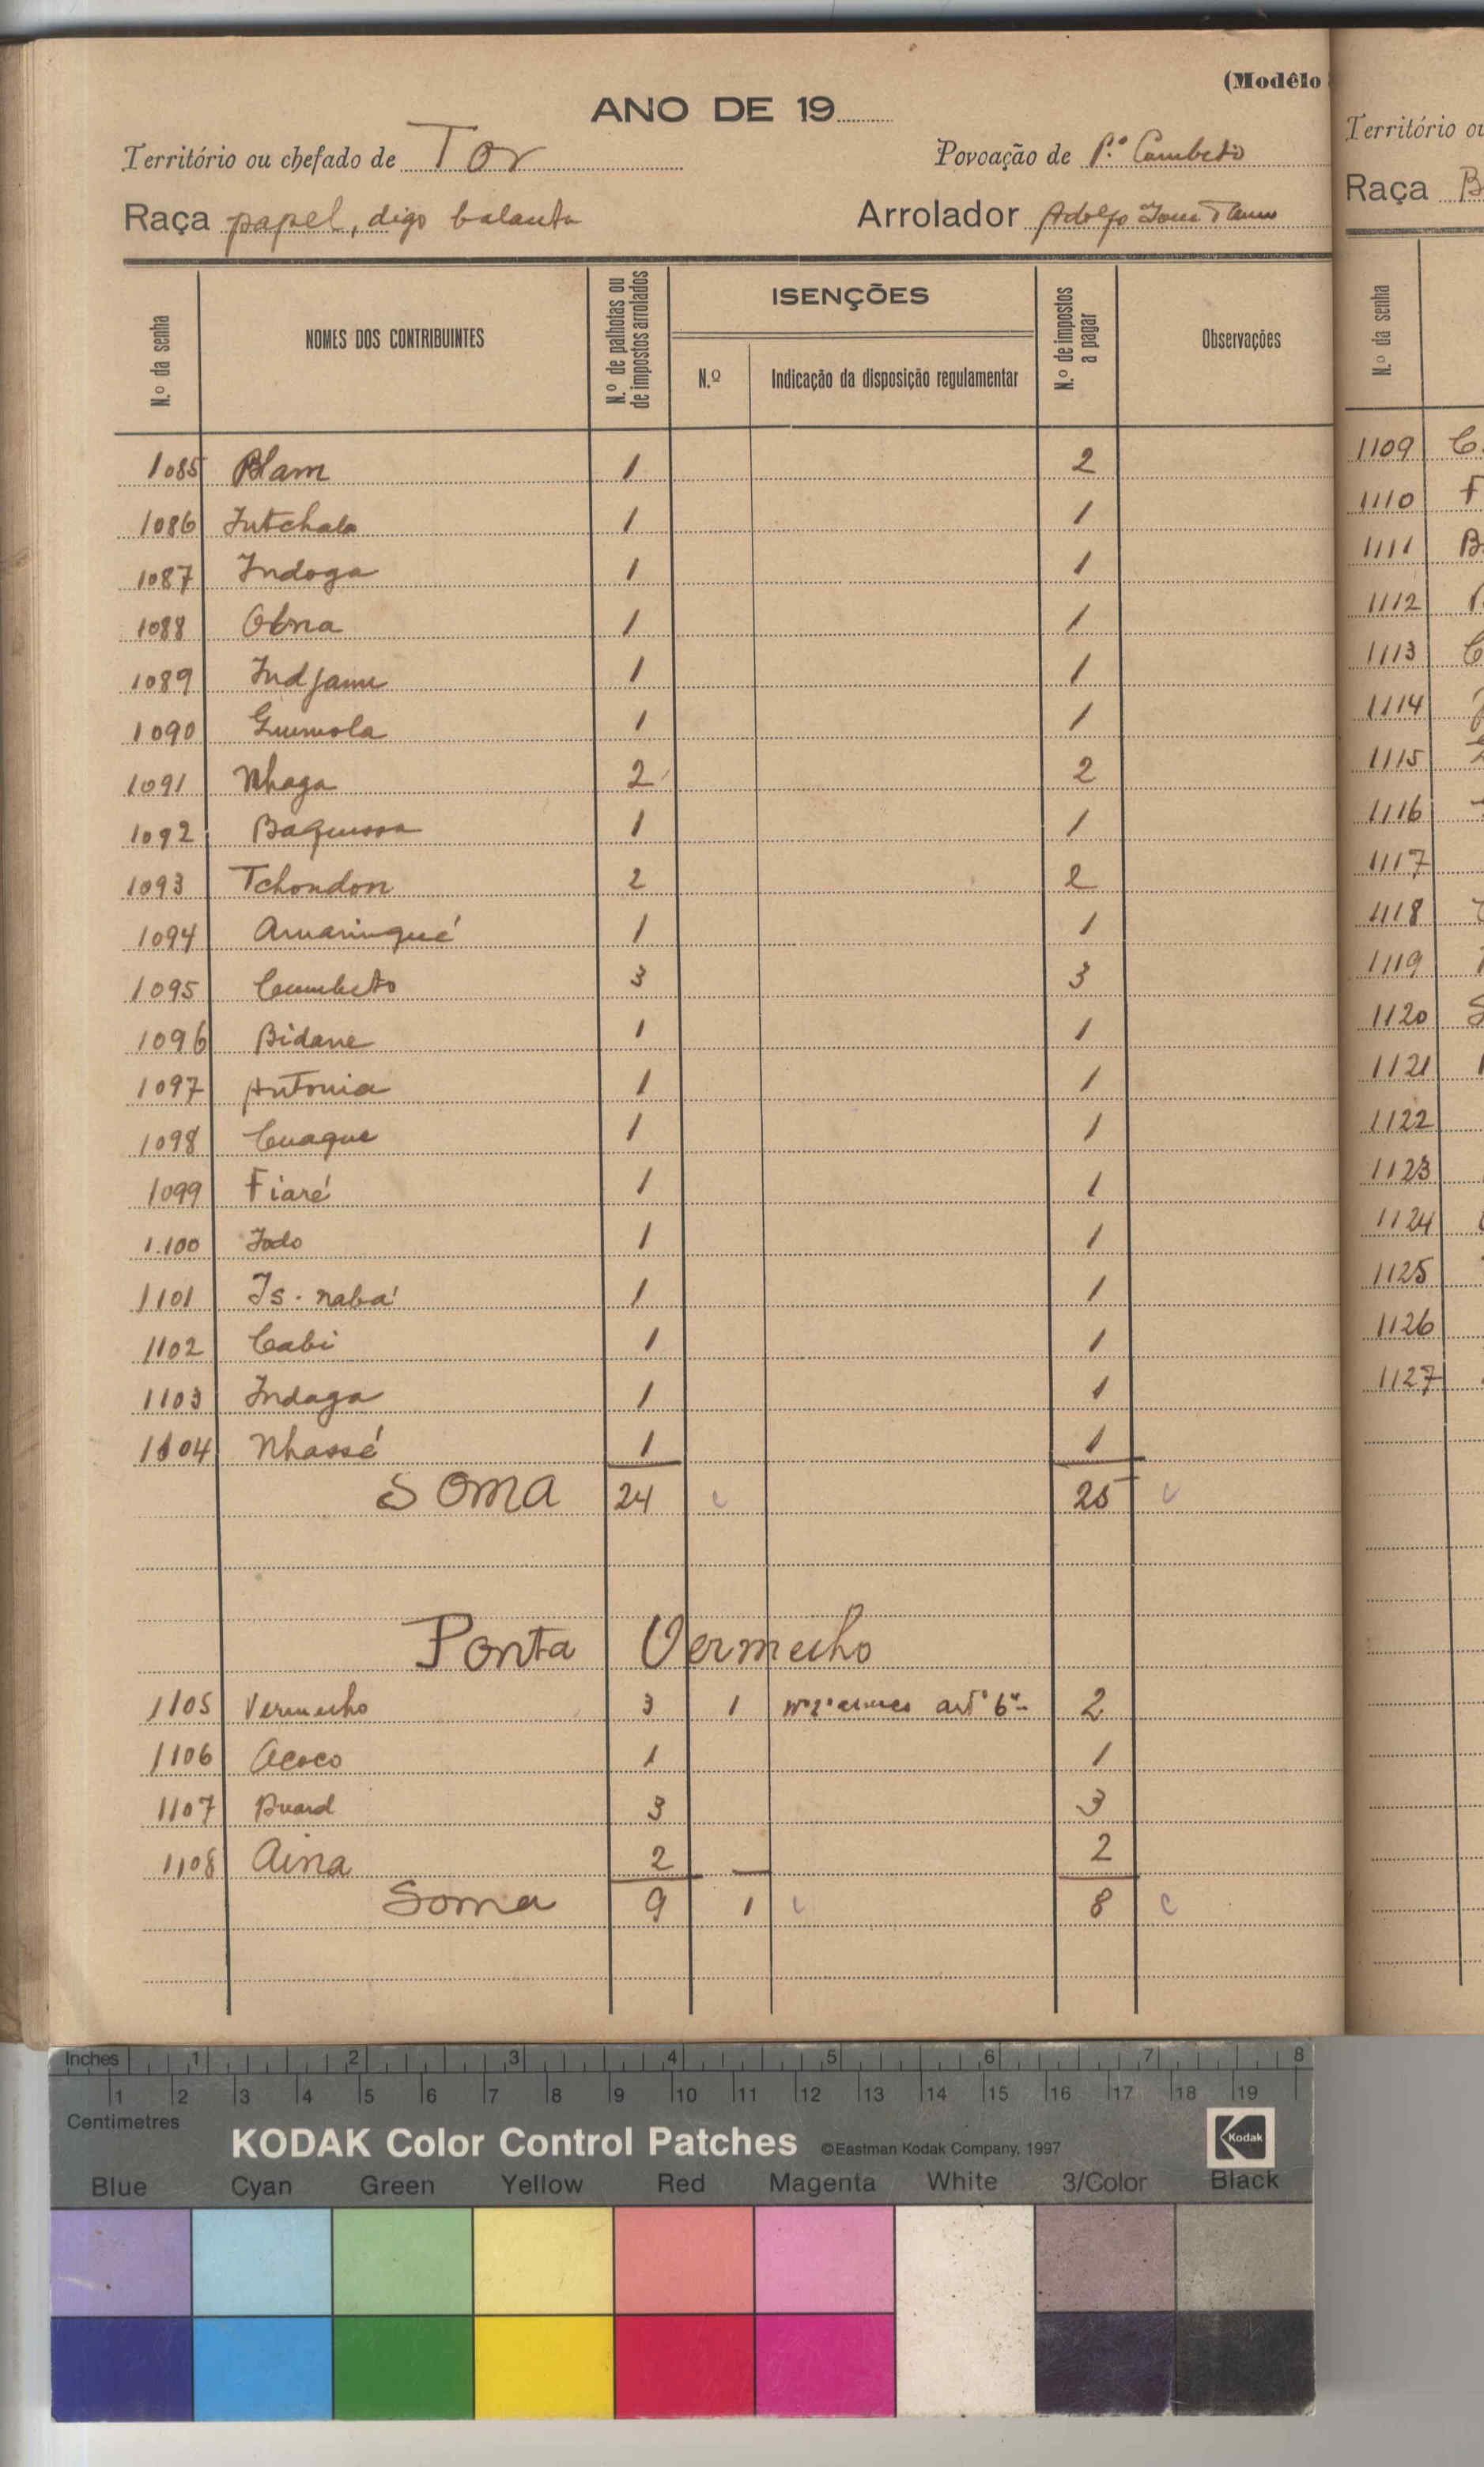 (Modêlo
ANO DE 19
Território ou chefado de Tor Povoação de P.ª Cumbeto
Raça papel, digo balanta Arrolador Adolfo
N.º da senha NOMES DOS CONTRIBUINTES N.º de palhotas ou de impostos arrolados ISENÇÕES N.º Indicação da disposição regulamentar N.º de impostos a pagar Observações
1085 Blam 1 2
1086 Intchala 1 1
1087 Indoga 1 1
1088 Obna 1 1
1089 Indjami 1 1
1090 1 1
1091 Nhaga 2 2
1092 1 1
1093 Tchondon 2 2
1094 Amarinqué 1 1
1095 Cumbeto 3 3
1096 Bidane 1 1
1097 Antonia 1 1
1098 Cuaque 1 1
1099 Fiaré 1 1
1.100 Jodo 1 1
1101 Is-nabá 1 1
1102 Cabi 1 1
1103 Indaga 1 1
1104 Nhassé 1 1
Soma 24 25
Ponta Vermelho
1105 Vermelho 3 1 art.º 6º 2
1106 Acoco 1 1
1107 3 3
1108 Aina 2 — 2
Soma 9 1 8
Território ou
Raça B
N.º da senha
1109
1110
1111
1112
1113
1114
1115
1116
1117
1118
1119
1120
1121
1122
1123
1124
1125
1126
1127
Inches 1 2 3 4 5 6 7 8
1 2 3 4 5 6 7 8 9 10 11 12 13 14 15 16 17 18 19
Centimetres
KODAK Color Control Patches ©Eastman Kodak Company, 1997 Kodak
Blue Cyan Green Yellow Red Magenta White 3/Color Black